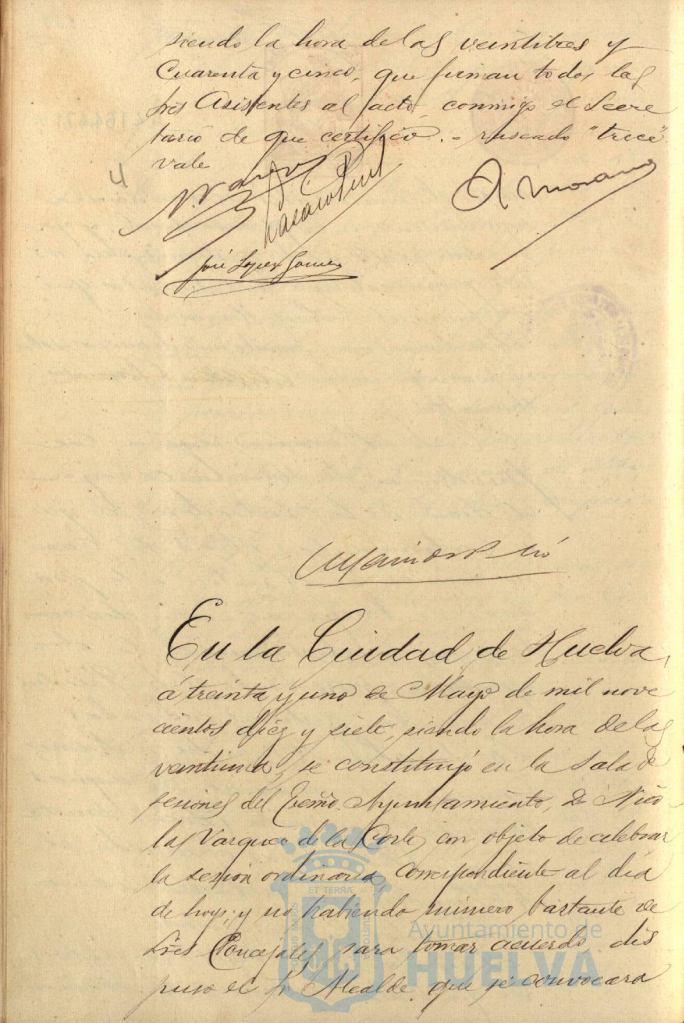 siendo la hora de las veintitres y
Cuarenta y cinco, que firman todos los
Sres Asistentes al acto conmigo el Secre
tario de que certifico. - raseado "trece"
vale
4
A Moreno
José Lopez Gomez
En la Ciudad de Huelva,
á treinta y uno de Mayo de mil nove
cientos diez y siete, siendo la hora de las
veintiuna, se constituyó en la Sala de
sesiones del Excmo Ayuntamiento, Dn Nico
las Vazquez de la Corte, con objeto de celebrar
la sesion ordinaria correspondiente al dia
de hoy; y no habiendo número bastante de
Sres Concejales para tomar acuerdo, dis
puso el Sr Alcalde que se convocara
ET TERRAE
Ayuntamiento de
HUELVA